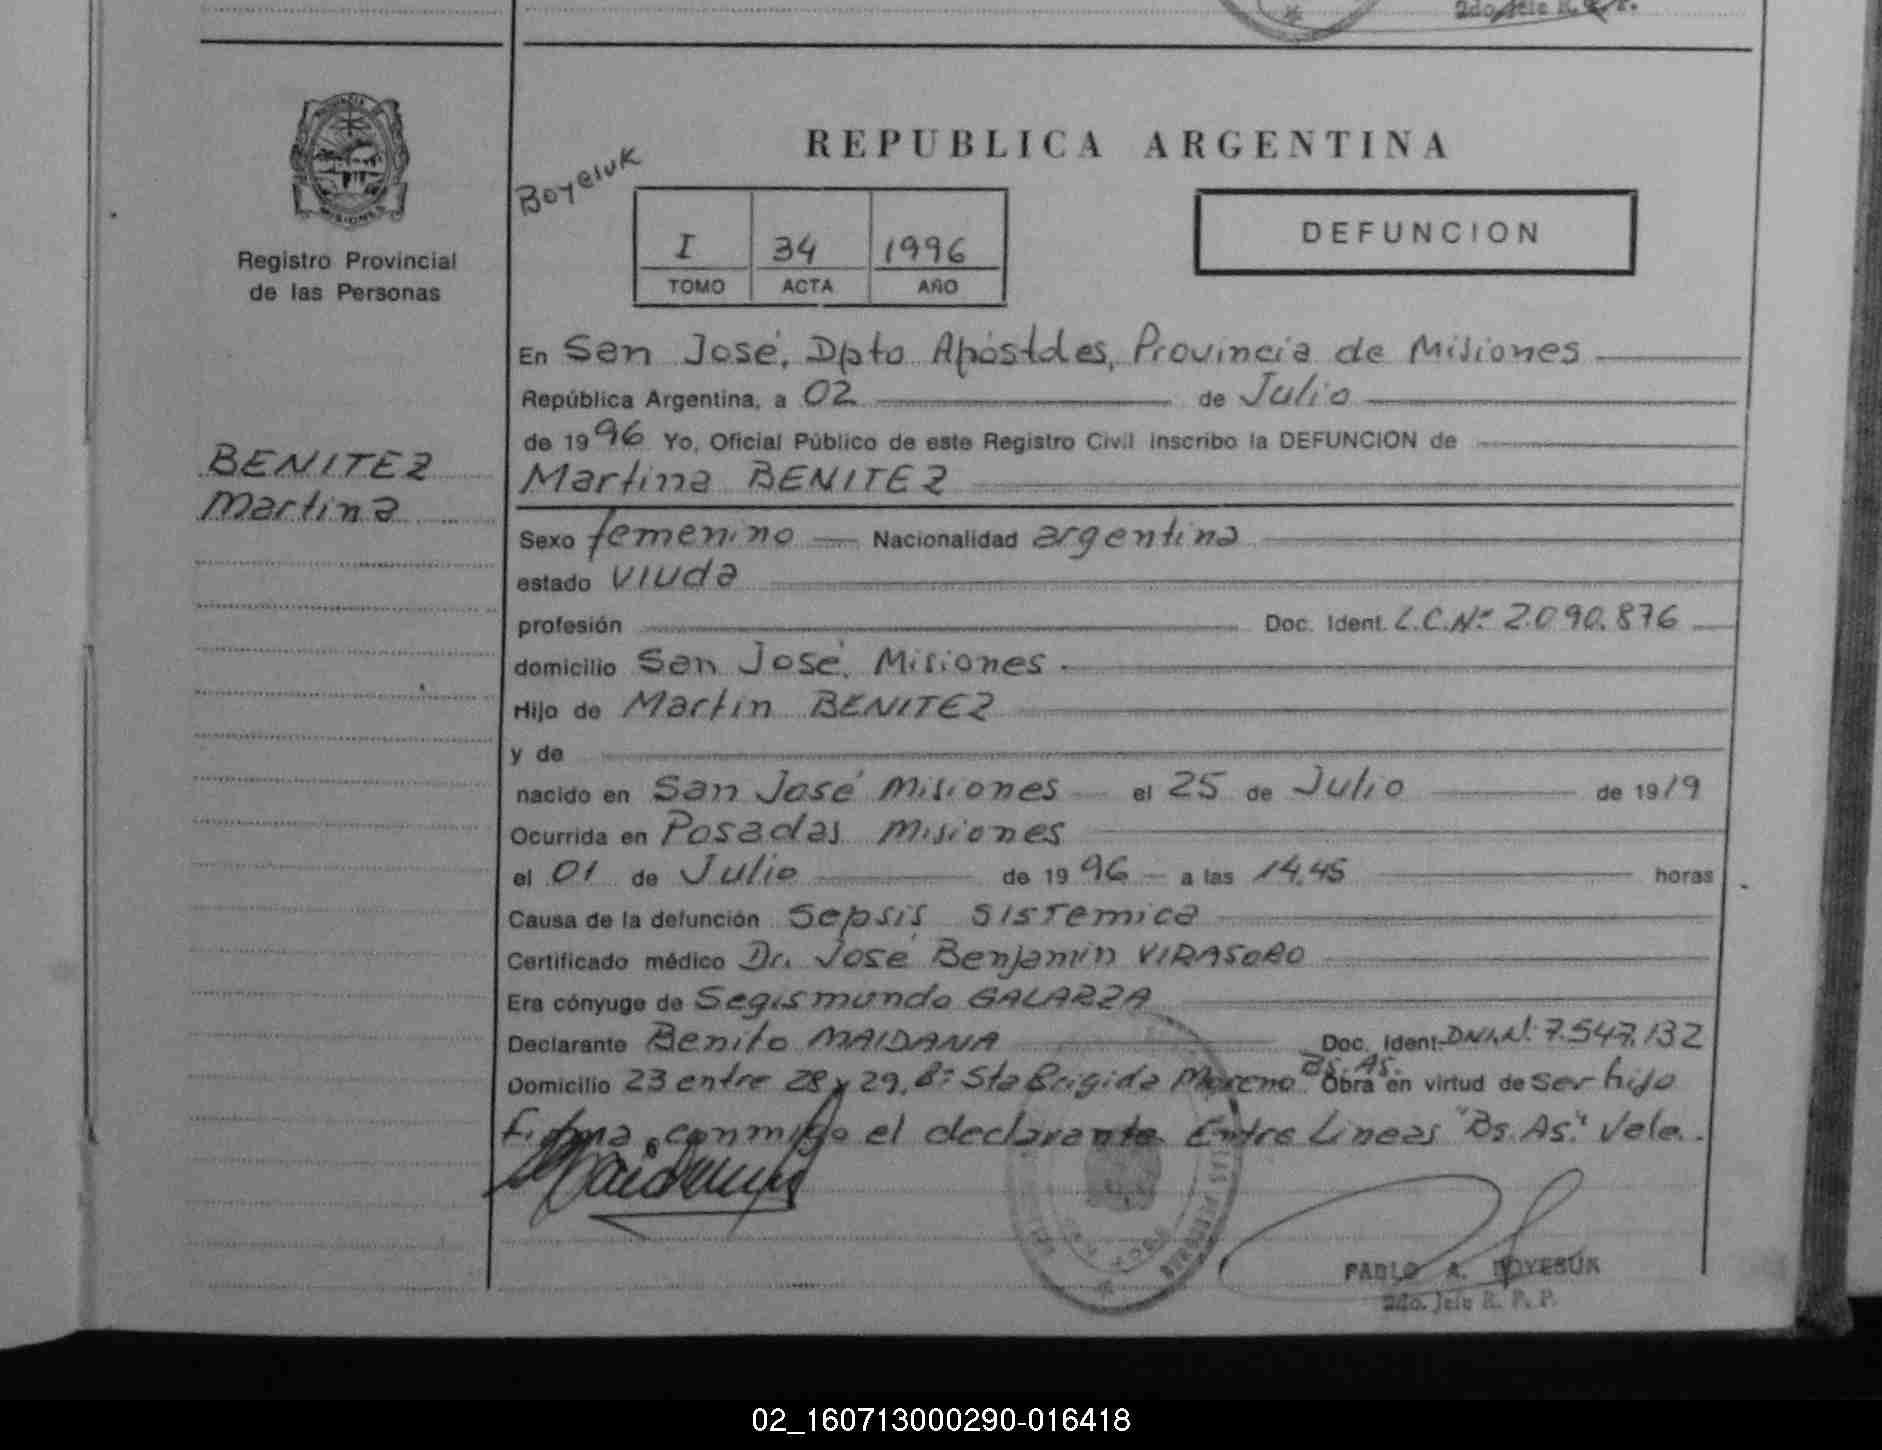 2do. Jefe R. P. P.
PROVINCIA
MISIONES
Registro Provincial
de las Personas
BENITEZ
Martina
REPUBLICA ARGENTINA
Boyeiuk
I 34 1996
TOMO ACTA AÑO
DEFUNCION
En San José, Dpto Apóstoles, Provincia de Misiones
República Argentina, a 02 de Julio
de 1996 Yo, Oficial Público de este Registro Civil inscribo la DEFUNCION de
Martina BENITEZ
Sexo femenino Nacionalidad argentina
estado viuda
profesión Doc. Ident. L.C.Nº 2.090.876
domicilio San José, Misiones
Hijo de Martin BENITEZ
y de
nacido en San José Misiones el 25 de Julio de 1919
Ocurrida en Posadas Misiones
el 01 de Julio de 1996 a las 14,45 horas
Causa de la defunción Sepsis Sistemica
Certificado médico Dr. José Benjamín VIRASORO
Era cónyuge de Segismundo GALARZA
Declarante Benito MAIDANA Doc. Ident. DNI.Nº 7.547.132
Bs. As.
Domicilio 23 entre 28 y 29, Bº Sta Brigida Moreno Obra en virtud de ser hijo
Firma conmigo el declarante Entre Lineas "Bs. As." Vale.
PABLO A. BOYESUK
2do. Jefe R. P. P.
02_160713000290-016418